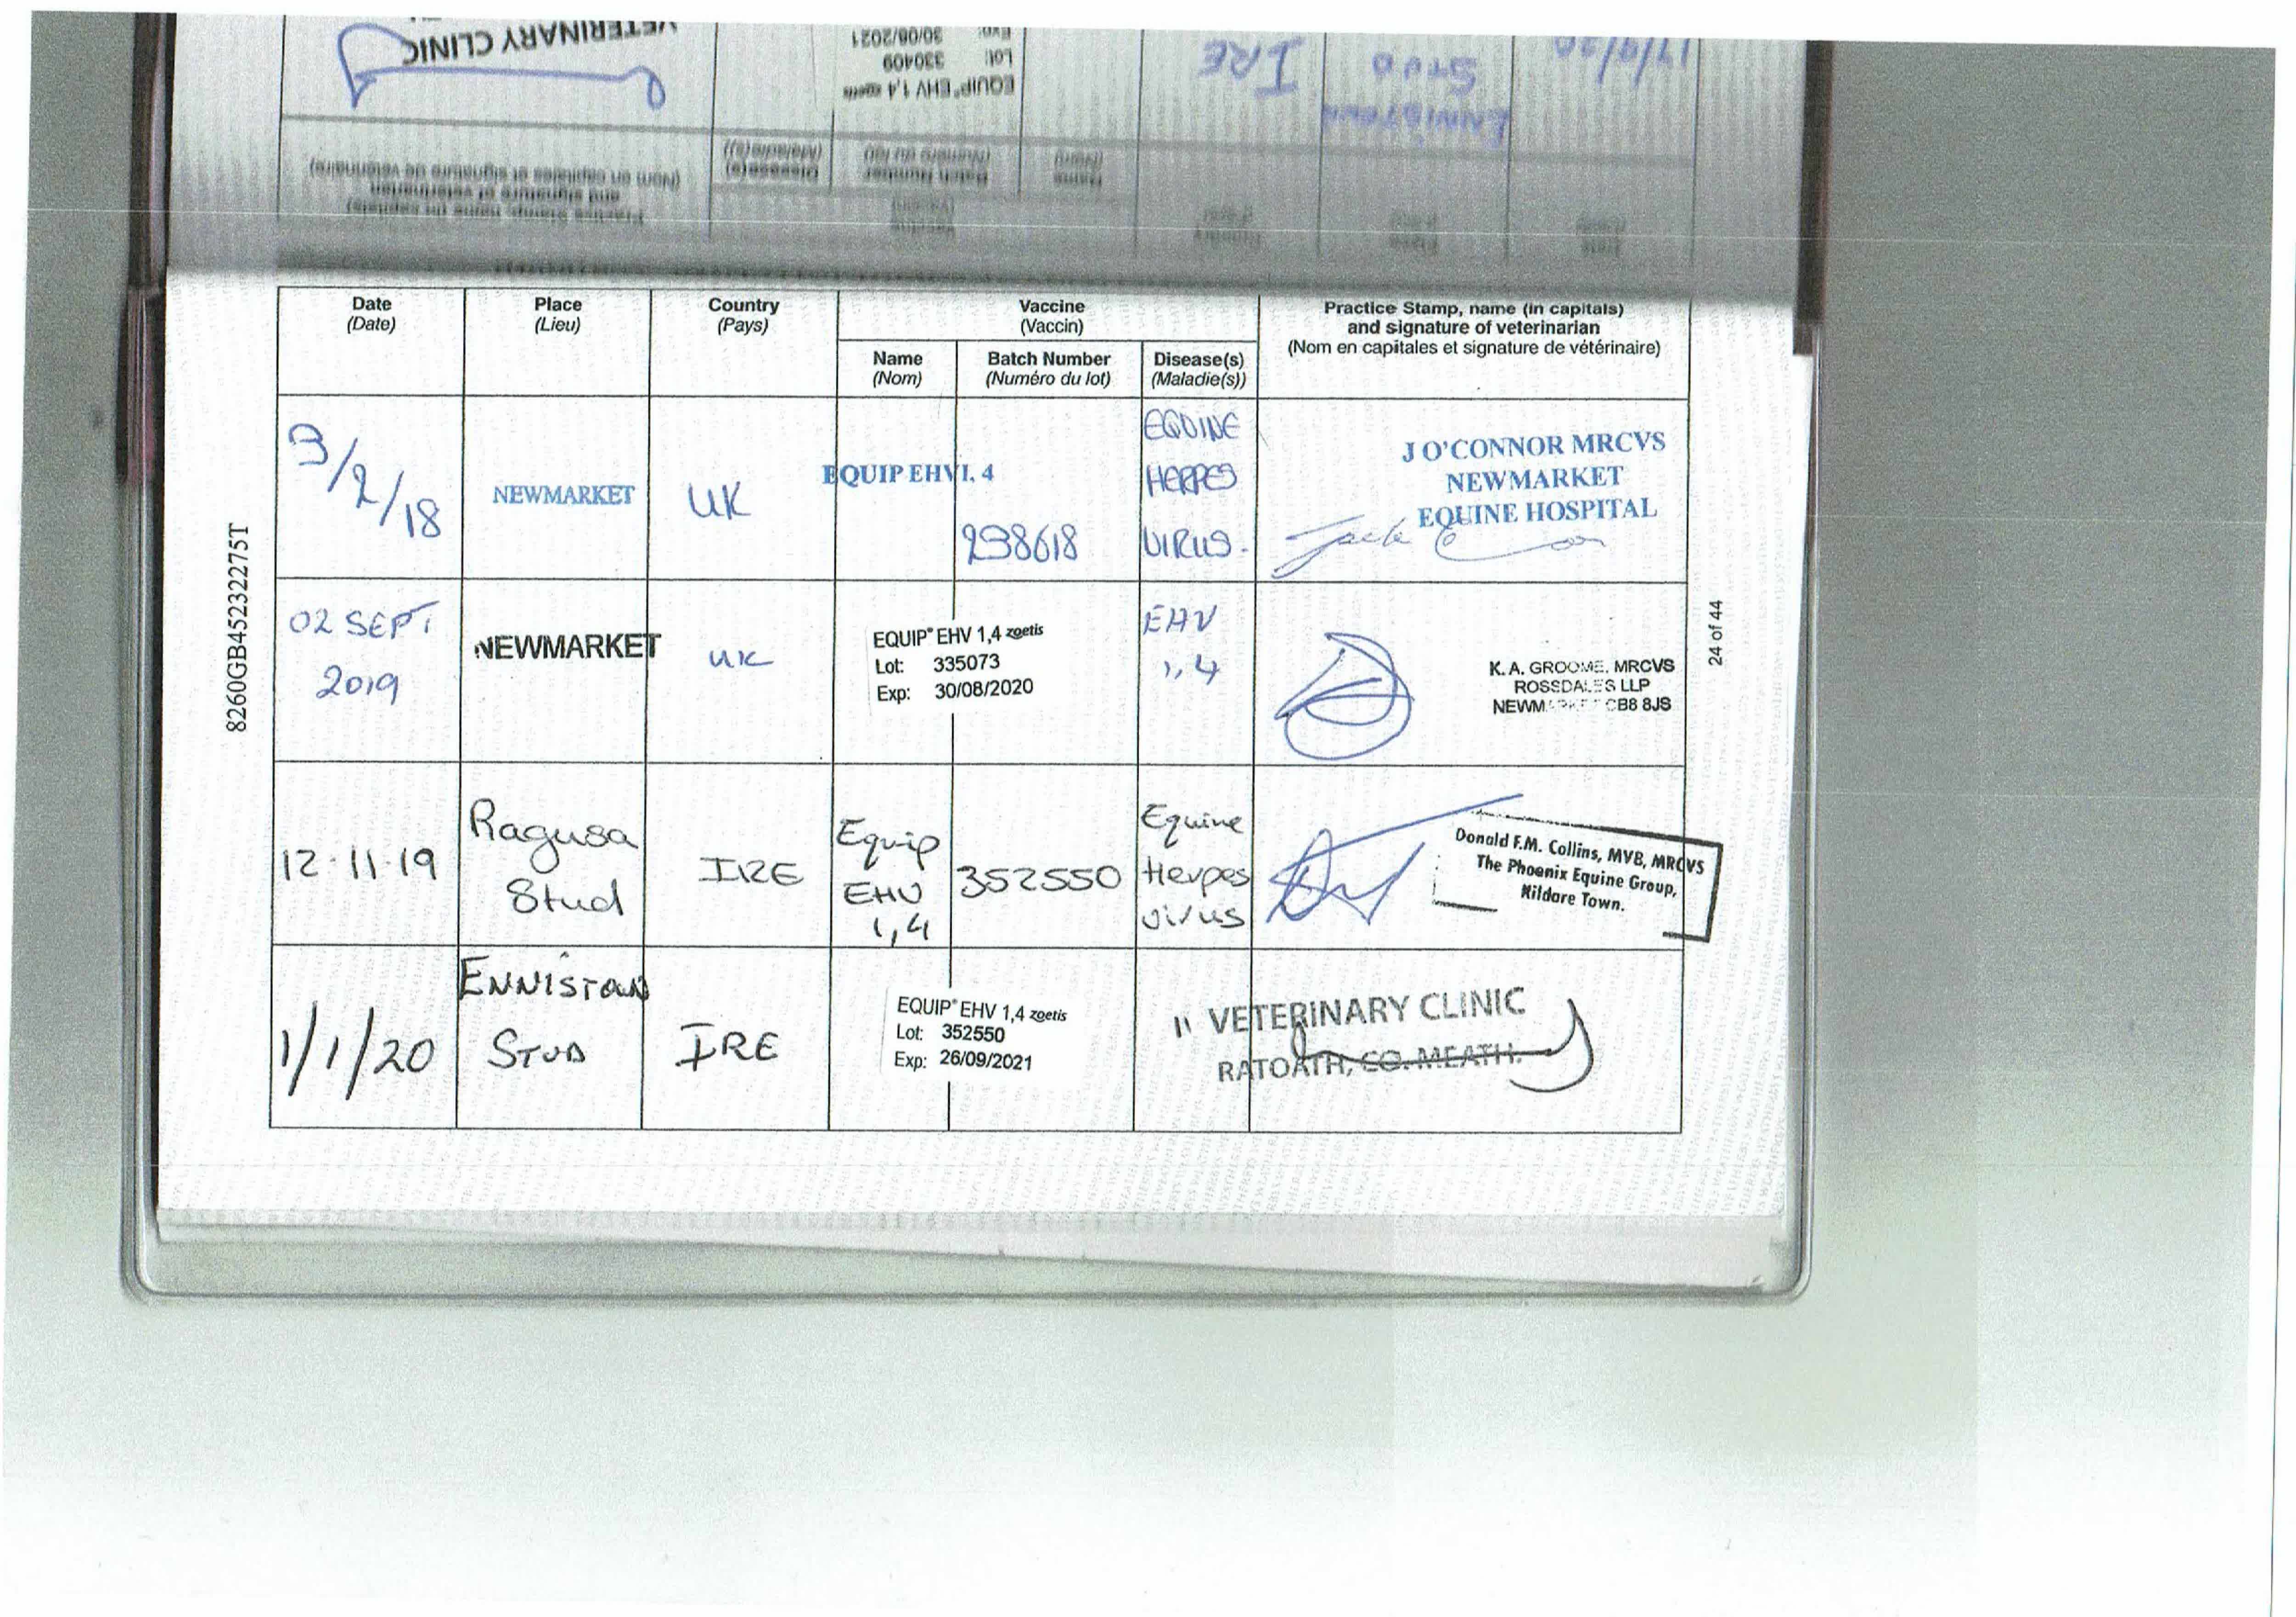 VETERINARY CLINIC
EQUIP® EHV 1,4 zoetis
Lot: 330409
Exp: 30/08/2021
IRE
STUD
17/9/20
Practice Stamp, name (in capitals)
and signature of veterinarian
(Nom en capitales et signature de vétérinaire)
Disease(s)
(Maladie(s))
Batch Number
(Numéro du lot)
Name
(Nom)
Date
(Date)
Place
(Lieu)
Country
(Pays)
Vaccine
(Vaccin)
Name
(Nom)
Batch Number
(Numéro du lot)
Disease(s)
(Maladie(s))
Practice Stamp, name (in capitals)
and signature of veterinarian
(Nom en capitales et signature de vétérinaire)
3/2/18
NEWMARKET
UK
EQUIP EHV1, 4
298618
EQUINE
HERPES
VIRUS.
J O'CONNOR MRCVS
NEWMARKET
EQUINE HOSPITAL
02 SEPT
2019
NEWMARKET
UK
EQUIP® EHV 1,4 zoetis
Lot: 335073
Exp: 30/08/2020
EHV
1,4
K. A. GROOME, MRCVS
ROSSDALES LLP
NEWMARKET CB8 8JS
12-11-19
Ragusa
Stud
IRE
Equip
EHV
1,4
352550
Equine
Herpes
virus
Donald F.M. Collins, MVB, MRCVS
The Phoenix Equine Group,
Kildare Town.
1/1/20
ENNISTOWN
STUD
IRE
EQUIP® EHV 1,4 zoetis
Lot: 352550
Exp: 26/09/2021
VETERINARY CLINIC
RATOATH, CO. MEATH.
8260GB45232275T
24 of 44